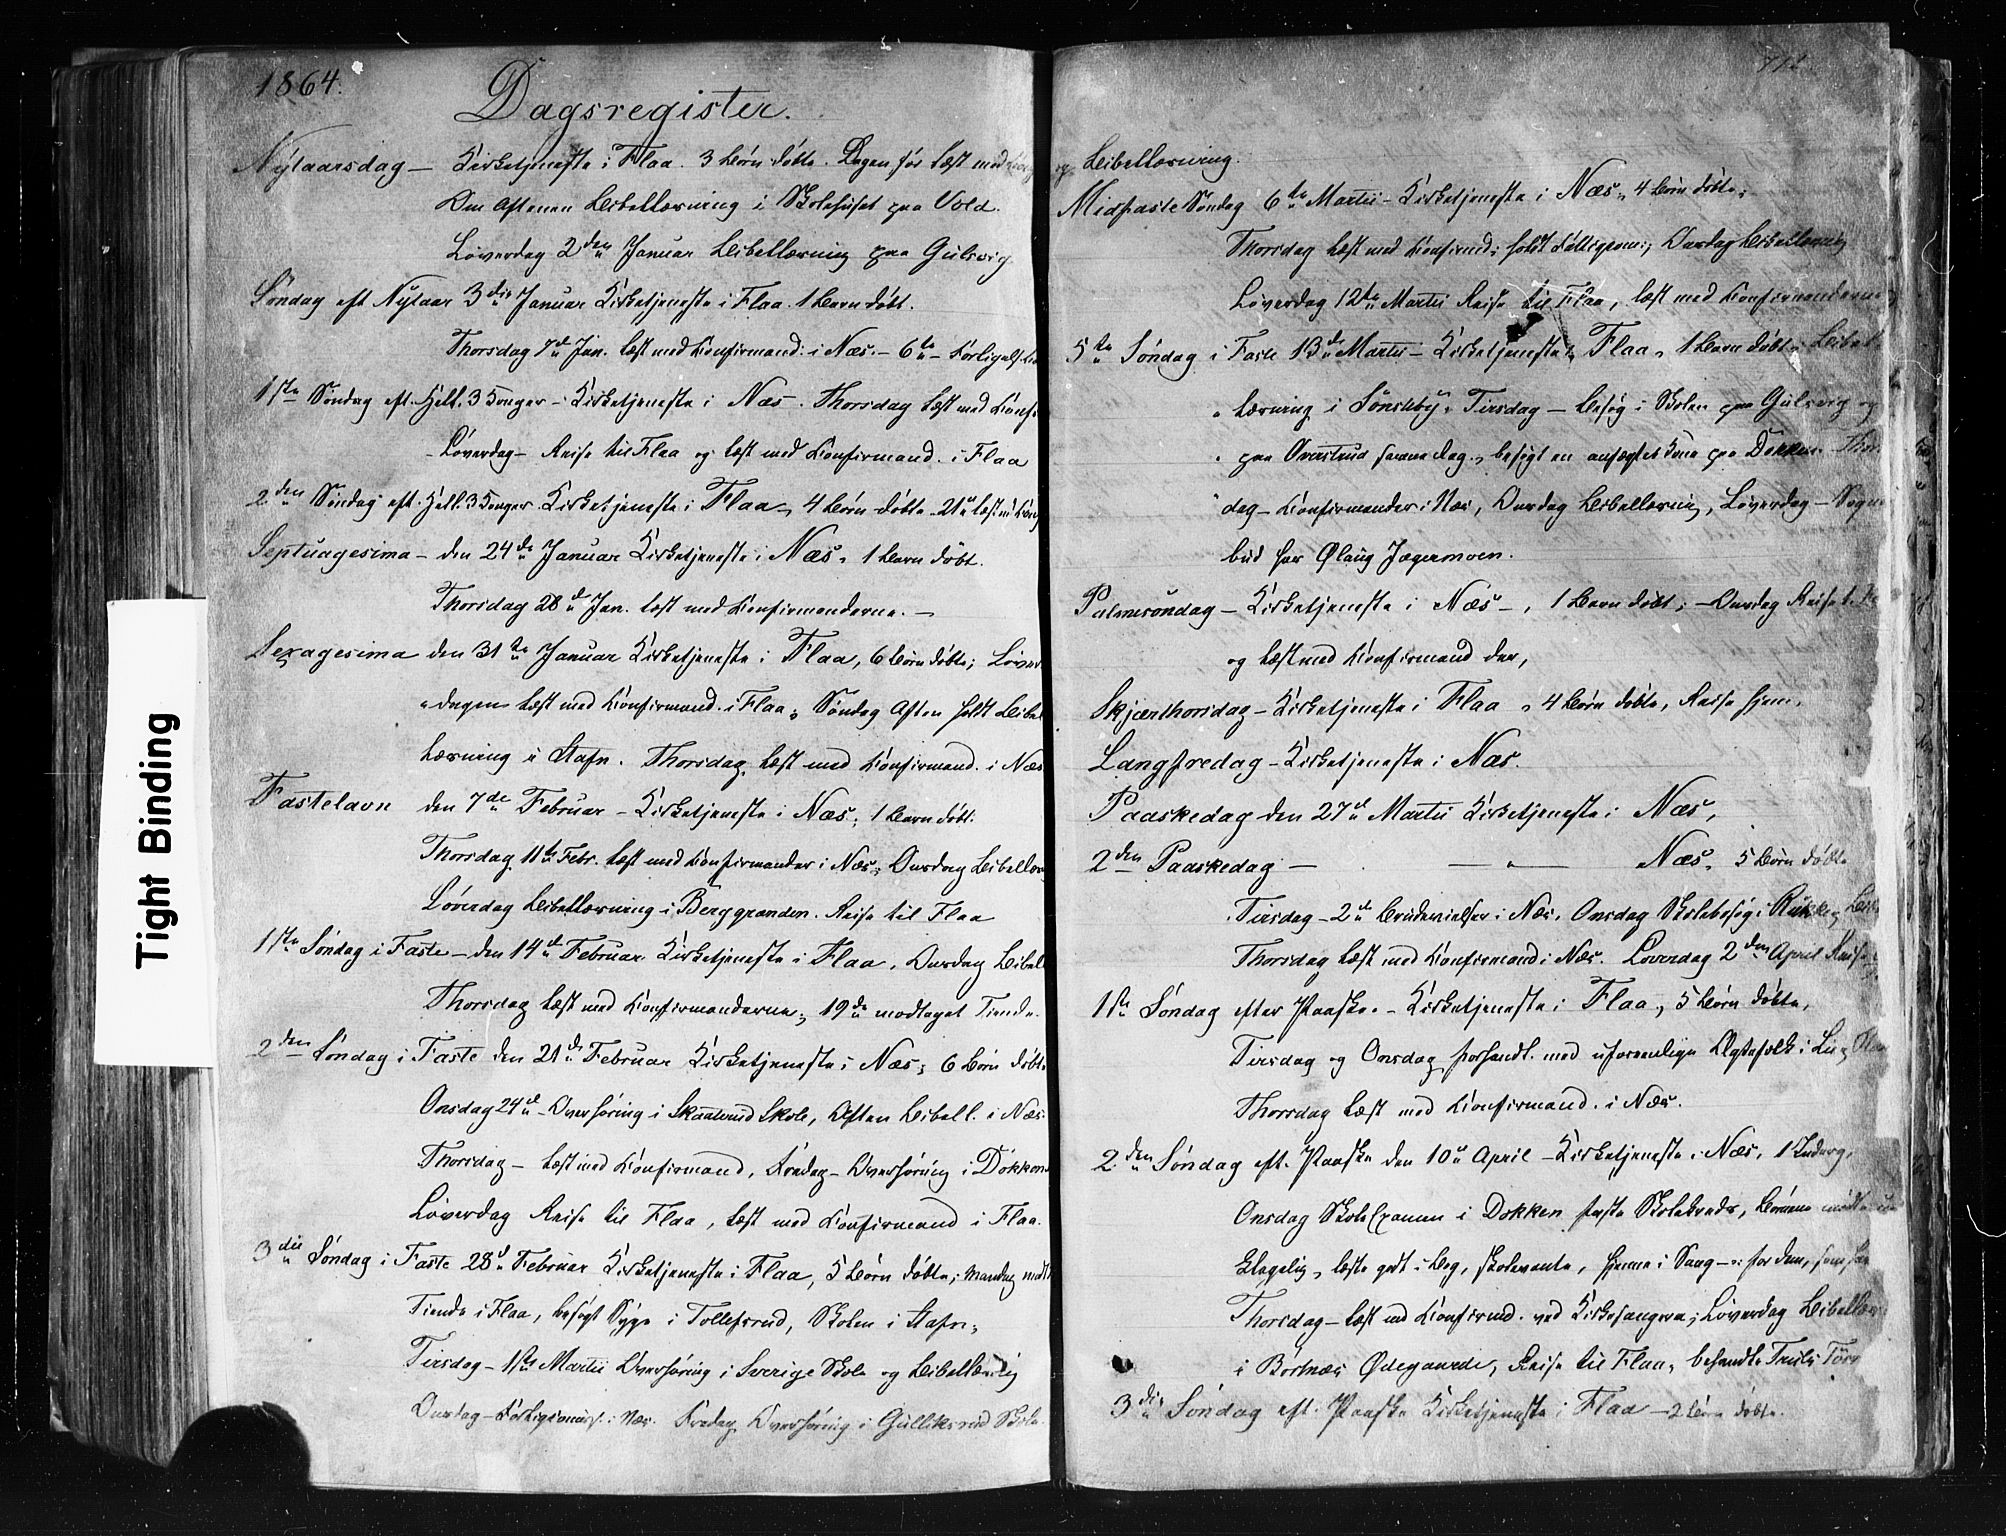 1864.
Dagsregister.
Nytaarsdag – Kirketjeneste i Flaa. 3 Børn døbte. Dagen før læst med
Om Aftenen Bibellæsning i Skolehuset paa Vold.
Løverdag 2den Januar Bibellæsning paa Gulsvig
Søndag eft Nytaar 3die Januar Kirketjeneste i Flaa. 1 Barn døbt.
Thorsdag 7d Jan. læst med Konfirmand. i Næs. – 6te –
1ste Søndag eft. Hell. 3 Konger – Kirketjeneste i Næs. Thorsdag læst med Konf
Løverdag – Reise til Flaa og læst med Konfirmand. i Flaa
2den Søndag eft. Hell. 3 Konger Kirketjeneste i Flaa, 4 Børn døbte. 21 læst m
Septuagesima – den 24de Januar Kirketjeneste i Næs. 1 Barn døbt.
Thorsdag 28d Jan. læst med Konfirmanderne. –
Sexagesima den 31te Januar Kirketjeneste i Flaa, 6 Børn døbte; Løver
dagen læst med Konfirmand. i Flaa, Søndag Aften holdt Bibel
læsning i Stafn. Thorsdag læst med Konfirmand. i Næs
Fastelavn den 7de Februar – Kirketjeneste i Næs, 1 Barn døbt.
Thorsdag 11te Febr. læst med Konfirmander i Næs, Onsdag Bibellæs
Løverdag Bibellæsning i Berggranden. Reise til Flaa
1ste Søndag i Faste – den 14d Februar Kirketjeneste i Flaa. Onsdag Bibell
Thorsdag læst med Konfirmanderne, 19de modtaget Tiende.
2den Søndag i Faste den 21de Februar Kirketjeneste i Næs, 6 Børn døbte
Onsdag 24d – Overhøring i Skaalrud Skole, Aften Bibell. i Næs.
Thorsdag – læst med Konfirmand, Fredag – Overhøring i Dokken
Løverdag Reise til Flaa, læst med Konfirmand i Flaa.
3die Søndag i Faste 28d Februar Kirketjeneste i Flaa, 5 Børn døbte, Mandag modt
Tiende i Flaa, besøgt Syge i Tollefsrud, Skolen i Stafn,
Tirsdag – 1ste Martii Overhøring i Sverige Skole og Bibellæsning
Onsdag – i Næs. Fredag Overhøring i Gulliksrud Skole
og Bibellæsning.
Midfaste Søndag 6te Martii – Kirketjeneste i Næs, 4 Børn døbte,
Thorsdag læst med Konfirmd; holdt; Onsdag Bibellæsning
Løverdag 12te Martii Reise til Flaa, læst med Konfirmanderne
5te Søndag i Faste 13d Martii – Kirketjeneste Flaa, 1 Barn døbt, Bibel
læsning i Sønsteby, Tirsdag – besøg i Skolen paa Gulsvig og
paa Overstrud samme Dag, besøgt en anfægtet Kone paa Dokken. Thors
dag – Konfirmander i Næs, Onsdag Bibellæsning, Løverdag – Sogne
bud hos Ølaug Jægermoen.
Palmesøndag – Kirketjeneste i Næs –, 1 Barn døbt; – Onsdag Reise t.
og læst med Konfirmand der,
Skjærthorsdag – Kirketjeneste i Flaa, 4 Børn døbte, Reise hjem.
Langfredag – Kirketjeneste i Næs.
Paaskedag den 27d Martii Kirketjeneste i Næs,
2den Paaskedag – — " — Næs, 5 Børn døbte
Tirsdag – 2 Brudevielser i Næs. Onsdag Skolebesøg i Rukke,
Thorsdag læst med Konfirmand i Næs. Løverdag 2den April Reise
1ste Søndag efter Paaske. – Kirketjeneste i Flaa, 5 Børn døbte,
Tirsdag og Onsdag forhandl. med uforenlige Ægtefolk i
Thorsdag læst med Konfirmand. i Næs.
2den Søndag eft. Paaske den 10d April – Kirketjeneste i Næs,
Onsdag Skole Examen i Dokken faste Skolekreds, Børnene mødte
læste godt i Bog, skolevante, i Sang – for dem, som
Thorsdag – læst med Konfirmd. ved Kirkesangeren; Løverdag Bibellæs
i Bortnæs Ødegaarde, Reise til Flaa,
3die Søndag eft. Paaske Kirketjeneste i Flaa – 2 Børn døbte.
Tight Binding